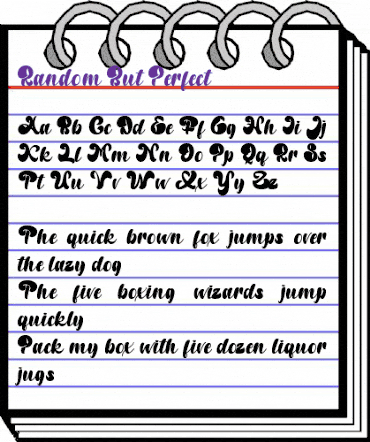 Random But Perfect
Aa Bb Cc Dd Ee Ff Gg Hh Ii Jj
Kk Ll Mm Nn Oo Pp Qq Rr Ss
Tt Uu Vv Ww Xx Yy Zz
The quick brown fox jumps over
the lazy dog
The five boxing wizards jump
quickly
Pack my box with five dozen liquor
jugs